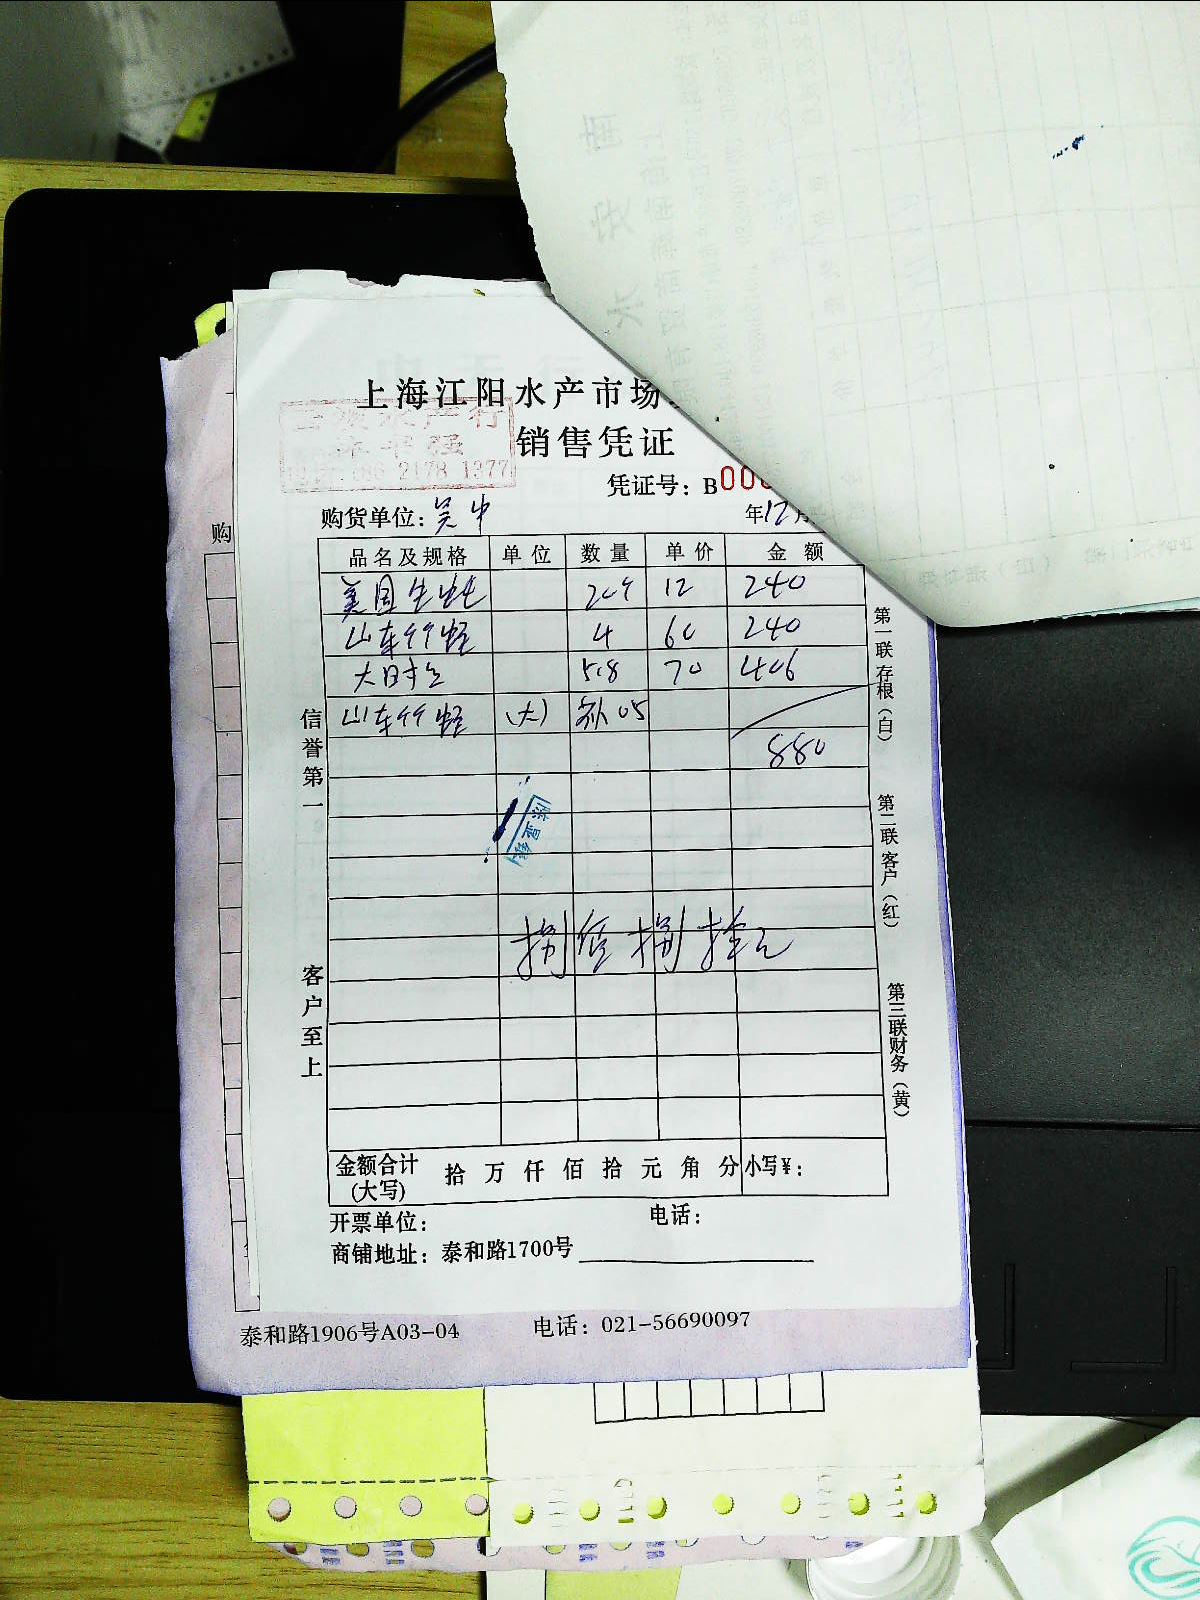 上海江阳水产市场
销售凭证
2178 1377
凭证号：B000
购货单位：吴中
年12月
品名及规格 单位 数量 单价 金额
美国生蚝 20个 12 240
山东竹蛏 4 60 240
大明虾 5.8 70 406
山东竹蛏 (大) 补 05
880
捌佰捌拾元
信誉第一
客户至上
第一联存根(白)
第二联客户(红)
第三联财务(黄)
金额合计
(大写)
拾万仟佰拾元角分 小写¥：
开票单位：
电话：
商铺地址：泰和路1700号
购
泰和路1906号A03-04 电话：021-56690097